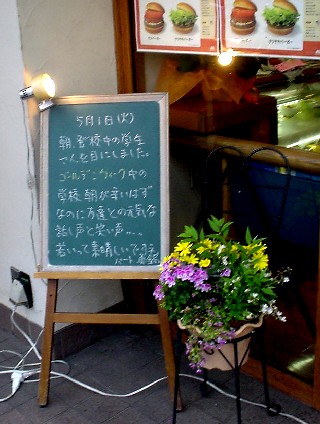 5月1日(火)
朝、登校中の学生
さんを目にしました。
ゴールデンウィーク中の
学校、朝が辛いはず
なのに友達との元気な
話し声と笑い声…。
若いって素晴しいですネ
パート